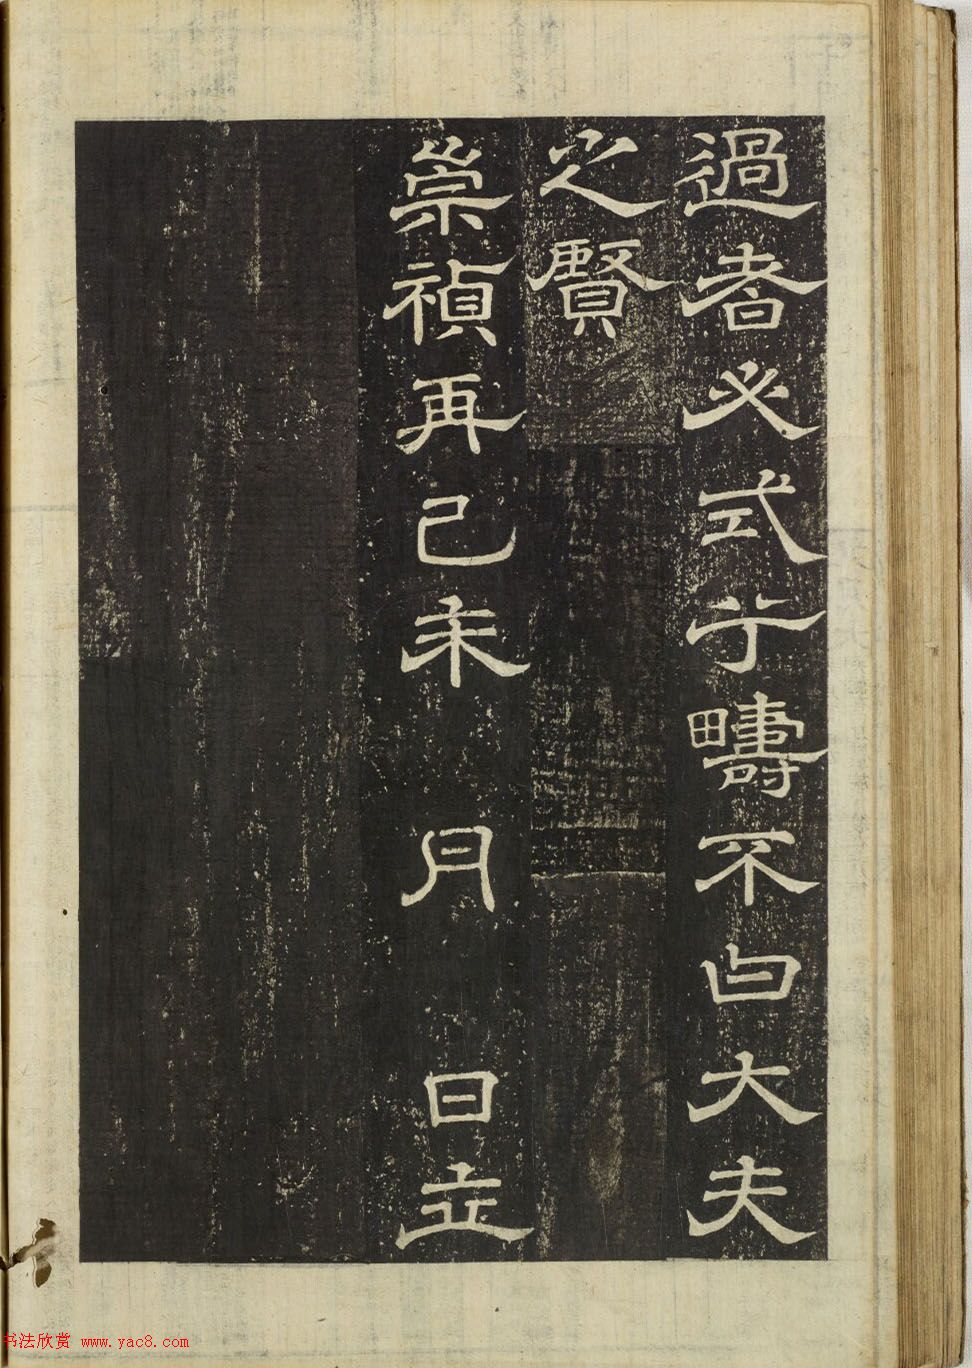 過者必式于疇不曰大夫
之賢
崇禎再己未 月 日立
书法欣赏 www.yac8.com